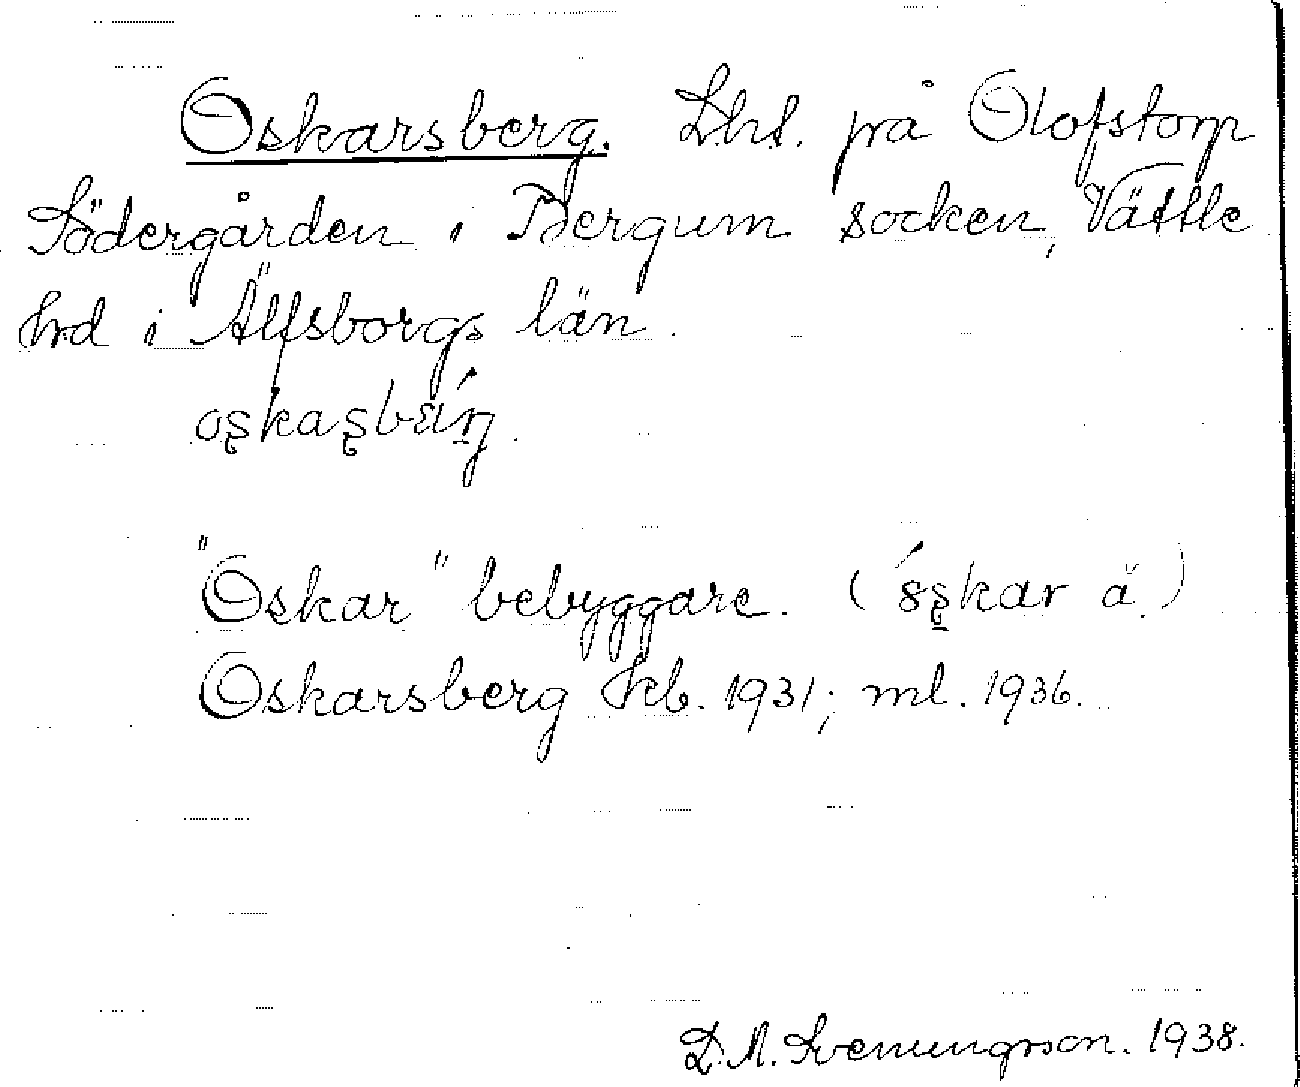 Oskarsberg. Lht. på Olofstorp
Södergården i Bergum socken, Vättle
hrd i Älfsborgs län.
"Oskar" bebyggare.
Oskarsberg kb. 1931; ml. 1936.
D. A. Svenungsson. 1938.